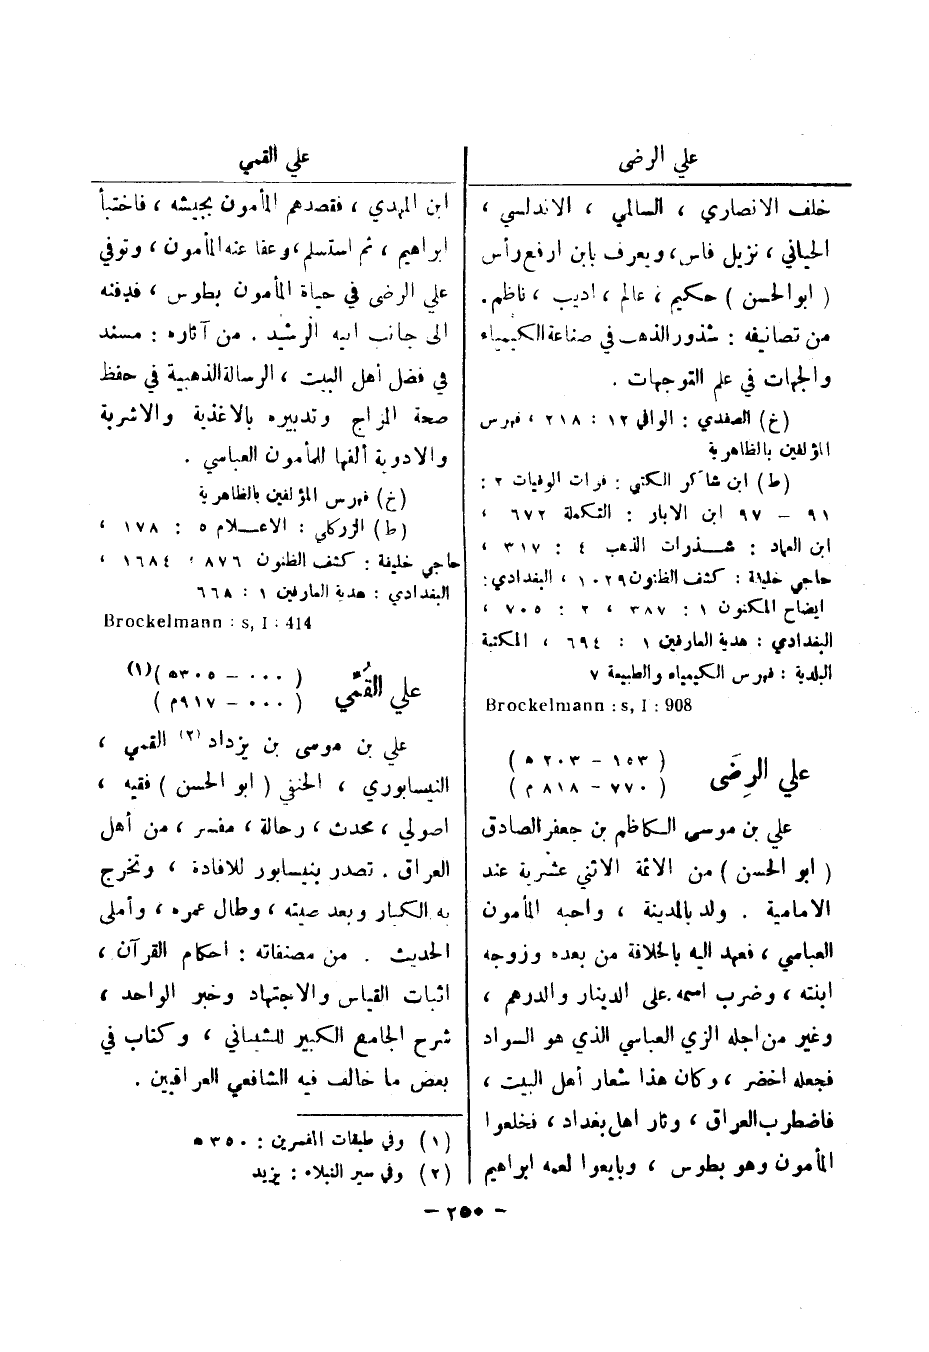 علي الرضى
خلف الانصاري ، السالمي ، الاندلسي ،
الجياني ، نزيل فاس ، ويعرف بابن ارفع رأس
( ابو الحسن ) حكيم ، عالم ، اديب ، ناظم .
من تصانيفه : شذور الذهب في صناعة الكيمياء
والجهات في علم التوجهات .
(خ) الصفدي : الوافي ١٢ : ٢١٨ ، فهرس
المؤلفين بالظاهرية
(ط) ابن شاكر الكتبي : فوات الوفيات ٢ :
٩١ – ٩٧ ابن الابار : التكملة ٦٧٢ ،
ابن العماد : شذرات الذهب ٤ : ٣١٧ ،
حاجي خليفة : كشف الظنون ١٠٢٩ ، البغدادي :
ايضاح المكنون ١ : ٣٨٧ ، ٢ : ٧٠٥ ،
البغدادي : هدية العارفين ١ : ٦٩٤ ، المكتبة
البلدية : فهرس الكيمياء والطبيعة ٧
Brockelmann : s, I : 908
علي الرِضَى
( ١٥٣ – ٢٠٣ ه )
( ٧٧٠ – ٨١٨ م )
علي بن موسى الكاظم بن جعفر الصادق
( ابو الحسن ) من الائمة الاثني عشرية عند
الامامية . ولد بالمدينة ، واحبه المأمون
العباسي ، فعهد اليه بالخلافة من بعده وزوجه
ابنته ، وضرب اسمه على الدينار والدرهم ،
وغير من اجله الزي العباسي الذي هو السواد
فجعله اخضر ، وكان هذا شعار أهل البيت ،
فاضطرب العراق ، وثار اهل بغداد ، فخلعوا
المأمون وهو بطوس ، وبايعوا لعمه ابراهيم
علي القمي
ابن المهدي ، فقصدهم المأمون بجيشه ، فاختبأ
ابراهيم ، ثم استسلم ، وعفا عنه المأمون ، وتوفي
علي الرضى في حياة المأمون بطوس ، فدفنه
الى جانب ابيه الرشيد . من آثاره : مسند
في فضل أهل البيت ، الرسالة الذهبية في حفظ
صحة المزاج وتدبيره بالاغذية والاشربة
والادوية ألفها للمأمون العباسي .
(خ) فهرس المؤلفين بالظاهرية
(ط) الزركلي : الاعلام ٥ : ١٧٨ ،
حاجي خليفة : كشف الظنون ٨٧٦ ، ١٦٨٤ ،
البغدادي : هدية العارفين ١ : ٦٦٨
Brockelmann : s, I : 414
علي القُمّي
( ٠٠٠ – ٣٠٥ ه )(١)
( ٠٠٠ – ٩١٧ م )
علي بن موسى بن يزداد (٢) القمي ،
النيسابوري ، الحنفي ( ابو الحسن ) فقيه ،
اصولي ، محدث ، رحالة ، مفسر ، من أهل
العراق . تصدر بنيسابور للافادة ، وتخرج
به الكبار وبعد صيته ، وطال عمره ، وأملى
الحديث . من مصنفاته : احكام القرآن ،
اثبات القياس والاجتهاد وخبر الواحد ،
شرح الجامع الكبير للشيباني ، وكتاب في
بعض ما خالف فيه الشافعي العراقيين .
(١) وفي طبقات المفسرين : ٣٥٠ ه
(٢) وفي سير النبلاء : يزيد
– ٢٥٠ –